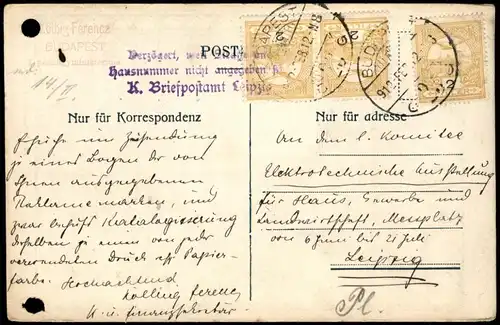 Kölling Ferencz
BUDAPEST
14/II
POST
Verzögert, weil Straße und
Hausnummer nicht angegeben ist
K. Briefpostamt Leipzig
BUDAPEST
BUDAPEST
912 FEB 12
Nur für Korrespondenz
Nur für adresse
Ersuche um Zusendung
je eines Bogen der von
Ihnen ausgegebenen
Reklamemarken, und
zwar behufs Katalogisierung
derselben je einen von jeder
verwendeten Druck als Papier-
farbe. Hochachtend
Kölling Ferencz
k. u. Finanzsekretär
An dem l. Komitee
Elektrotechnische Ausstellung
für Haus, Gewerbe und
Landwirtschaft, Messplatz
von 6 Juni bis 21 Juli
Leipzig
Pl.